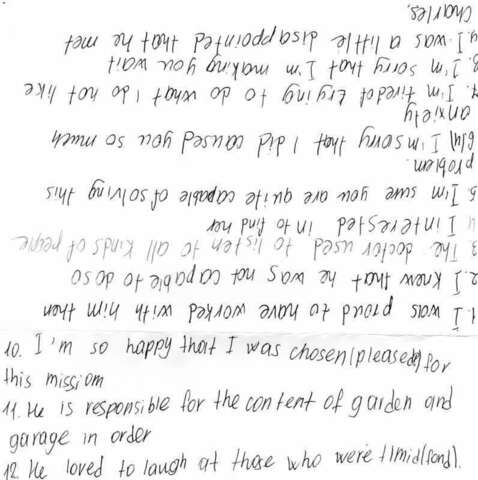 1. I was proud to have worked with him then
2. I knew that he was not capable to do so
3. The doctor used to listen to all kinds of people
4 I interested in to find her
5. I'm sure you are quite capable of solving this
problem.
I'm sorry that I did caused you so much
anxiety
7. I'm tired of trying to do what I do not like
8. I'm sorry that I'm making you wait
9. I was a little disappointed that he met
Charles.
10. I'm so happy that I was chosen (pleased) for
this missiom
11. He is responsible for the content of garden and
garage in order
12. He loved to laugh at those who were timid